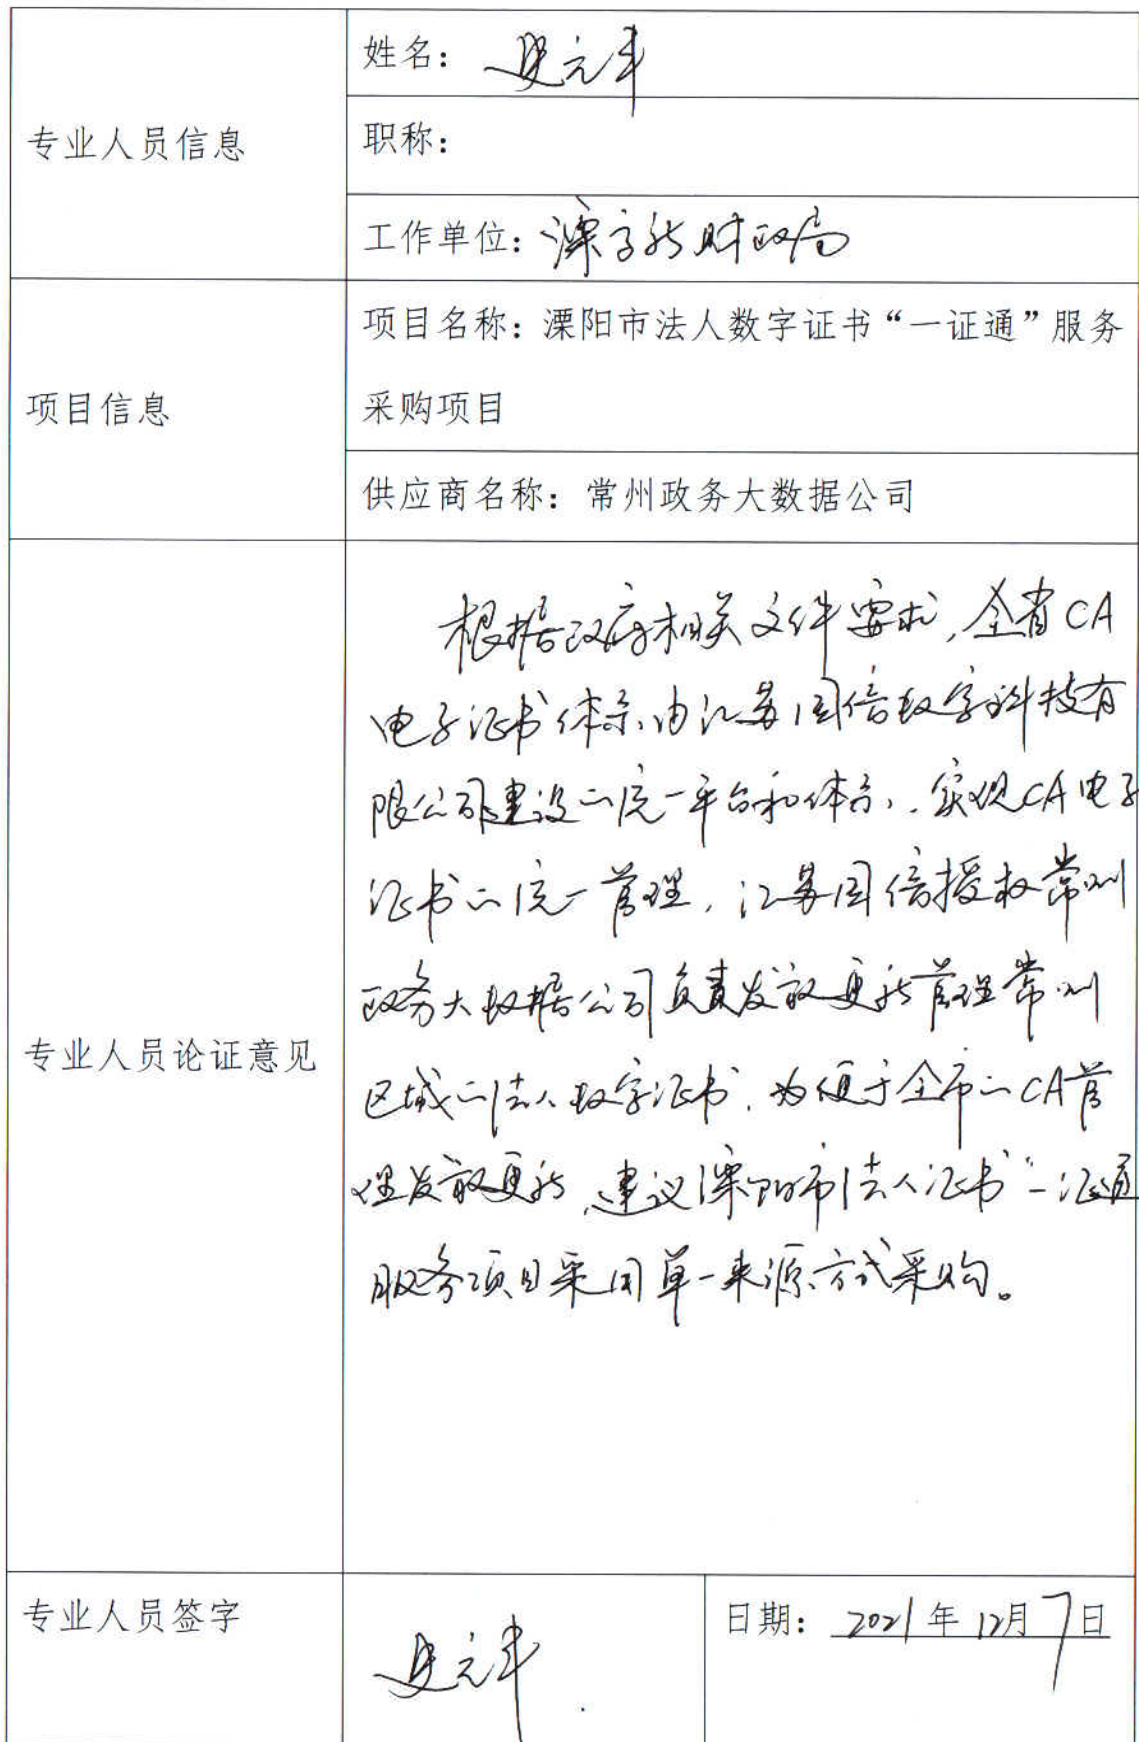 专业人员信息
姓名：史元丰
职称：
工作单位：溧 财政局
项目信息
项目名称：溧阳市法人数字证书“一证通”服务
采购项目
供应商名称：常州政务大数据公司
专业人员论证意见
根据政府相关文件要求，全省CA
电子证书体系由江苏国信数字科技有
限公司建设的统一平台和体系，实现CA电子
证书的统一管理，江苏国信授权常州
政务大数据公司负责发放更新管理常州
区域的法人数字证书，为便于全市的CA管
理发放更新，建议溧阳市法人证书“一证通
服务项目采用单一来源方式采购。
专业人员签字
史元丰
日期：2021年12月7日